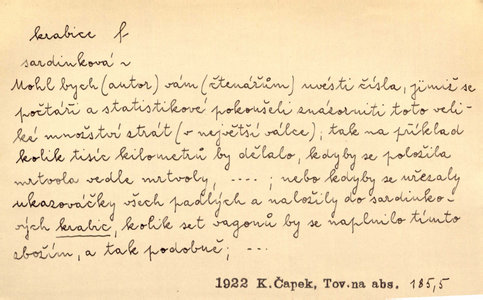 krabice f
sardinková ~
Mohl bych (autor) vám (čtenářům) uvésti čísla, jimiž se
počtáři a statistikové pokoušeli znázorniti toto veli-
ké množství ztrát (v největší válce); tak na příklad
kolik tisíc kilometrů by dělalo, kdyby se položila
mrtvola vedle mrtvoly, ....; nebo kdyby se uřezaly
ukazováčky všech padlých a naložily do sardinko-
vých krabic, kolik set vagonů by se naplnilo tímto
zbožím, a tak podobně; ...
1922 K.Čapek, Tov.na abs. 185,5